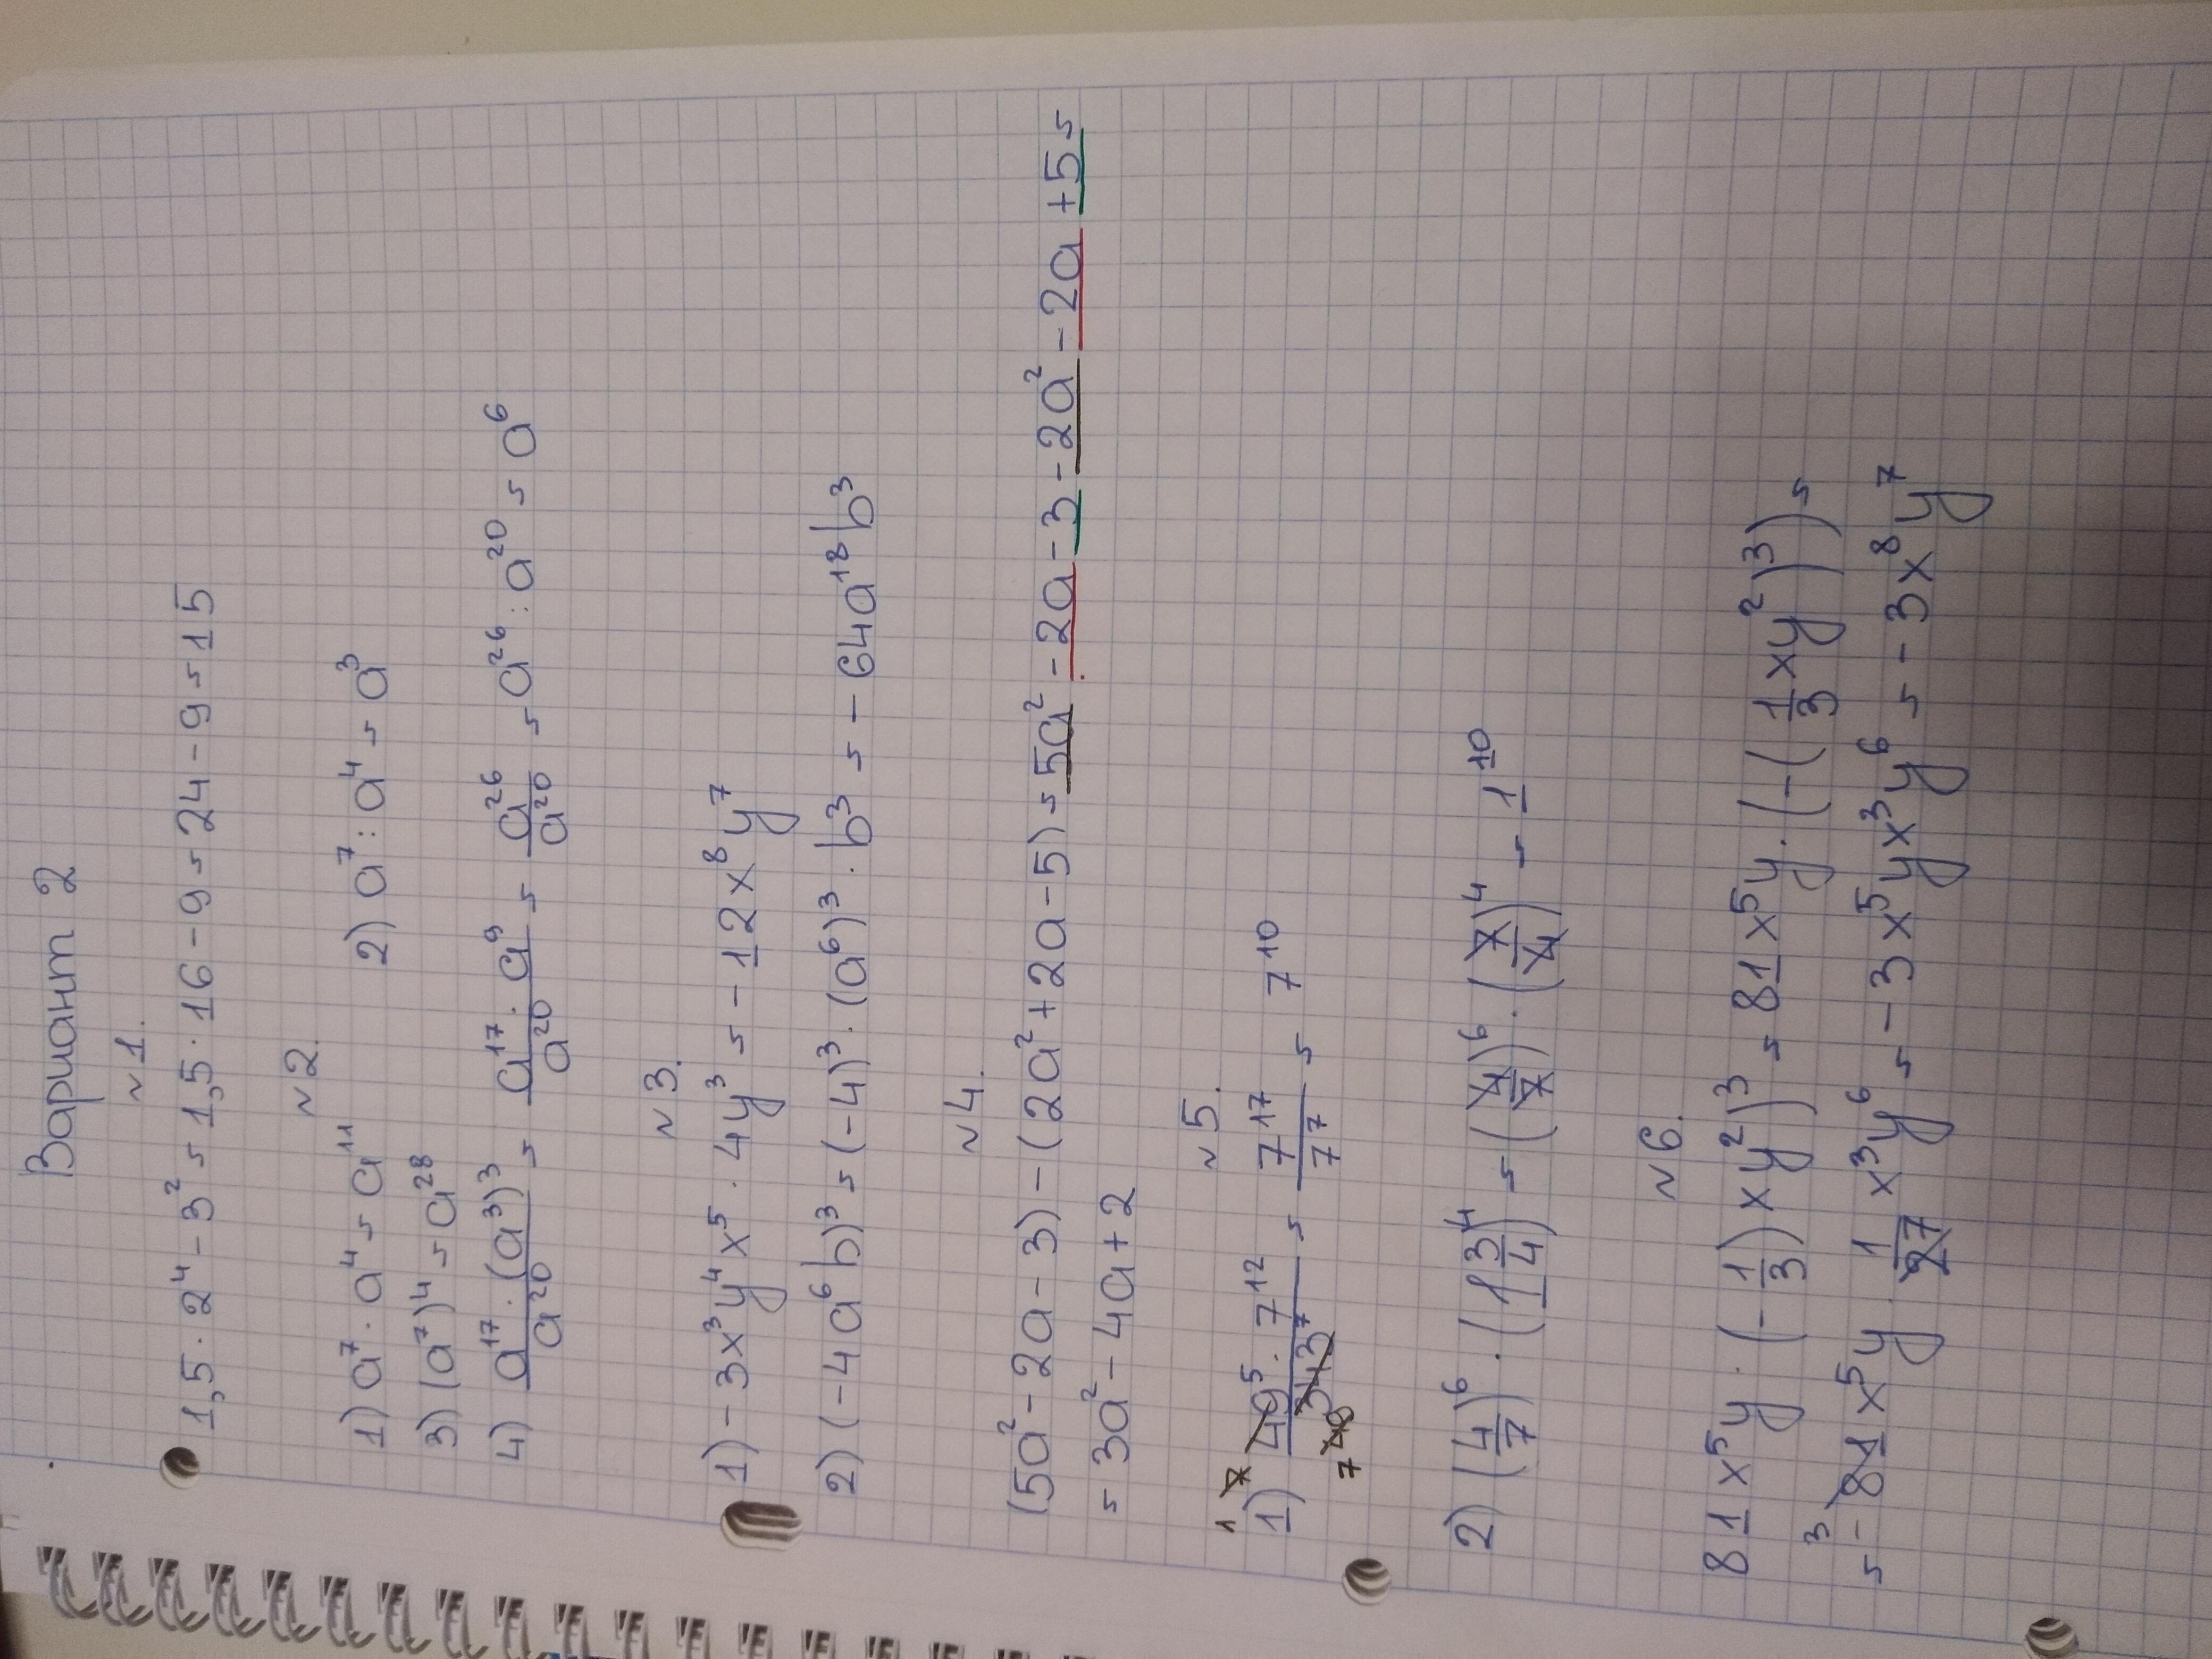 Вариант 2
~1.
1,5 · 2⁴ - 3² = 1,5 · 16 - 9 = 24 - 9 = 15
~2.
1) a⁷ · a⁴ = a¹¹ 2) a⁷ : a⁴ = a³
3) (a⁷)⁴ = a²⁸
4) a¹⁷ · (a³)³ / a²⁰ = a¹⁷ · a⁹ / a²⁰ = a²⁶ / a²⁰ = a²⁶ : a²⁰ = a⁶
~3.
1) - 3x³y⁴x⁵ · 4y³ = - 12x⁸y⁷
2) (-4a⁶b)³ = (-4)³ · (a⁶)³ · b³ = - 64a¹⁸b³
~4.
(5a² - 2a - 3) - (2a² + 2a - 5) = 5a² - 2a - 3 - 2a² - 2a + 5 =
= 3a² - 4a + 2
~5.
1) 49⁵ · 7¹² / 343⁷ = 7¹⁷ / 7⁷ = 7¹⁰
2) (4/7)⁶ · (1 3/4)⁴ = (4/7)⁶ · (7/4)⁴ = 1¹⁰
~6.
81x⁵y · (-1/3)xy²)³ = 81x⁵y · (-(1/3 xy²)³) =
= - 81x⁵y · 1/27 x³y⁶ = - 3x⁵yx³y⁶ = - 3x⁸y⁷